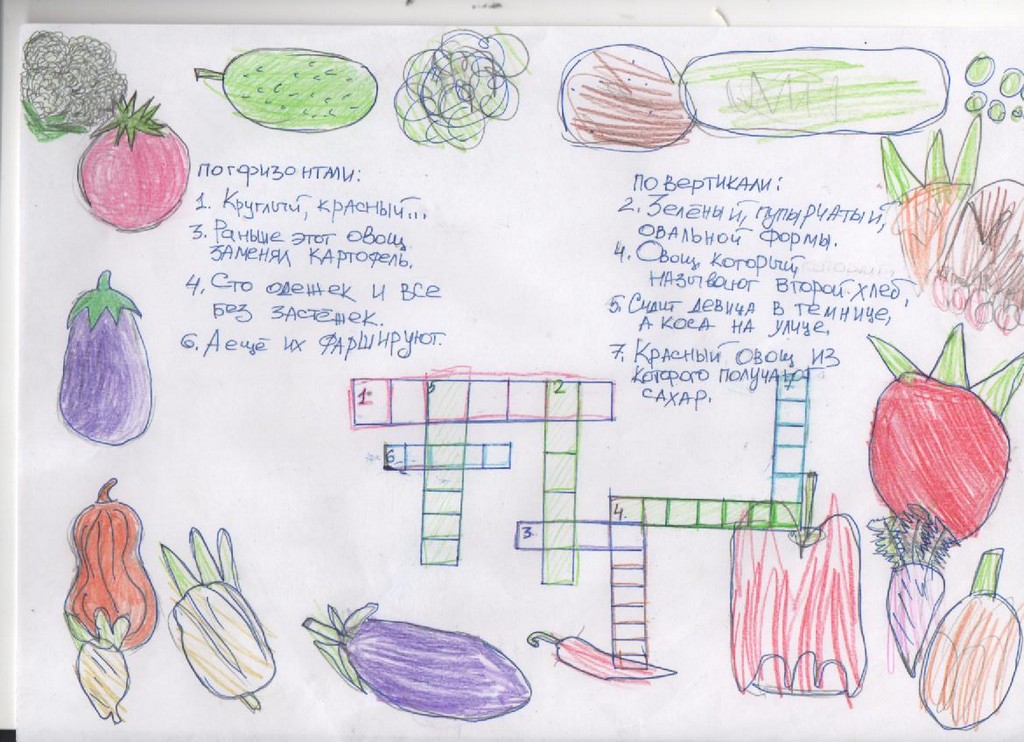 По горизонтали:
1. Круглый, красный...
3. Раньше этот овощ
заменял картофель.
4. Сто одежек и все
без застёжек.
6. А ещё их фаршируют.
По вертикали:
2. Зелёный, пупырчатый,
овальной формы.
4. Овощ который
называют второй хлеб,
5. Сидит девица в темнице,
а коса на улице,
7. Красный овощ из
которого получают
сахар.
1 5 2 7
6
4.
3